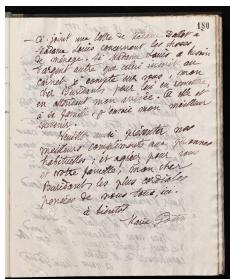 180
Ci-joint une lettre de Madame
Madame Louis concernant les choses
de ménage. Si Madame Louis a besoin
d'argent autre que celui inscrit au
carnet, compte sur vous, mon
cher Burdant pour lui en remettre
en attendant mon arrivée. à elle et
à sa famille, j'envoie mon meilleur
souvenir.
Veuillez aussi présenter nos
meilleurs compliments aux personnes
habituelles; et agréer pour vous
et votre famille, mon cher
Burdant les plus cordiales
pensées de nous tous ici.
à bientôt